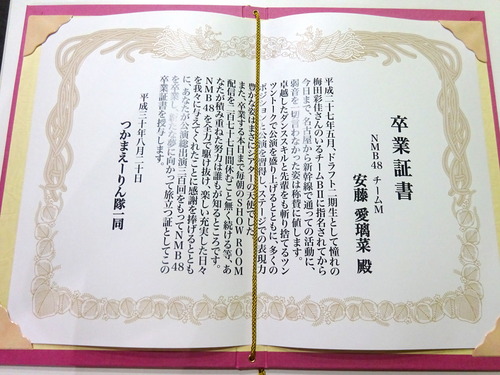 卒業証書
NMB48 チームM
安藤 愛璃菜 殿
平成二十七年五月、ドラフト二期生として憧れの
梅田彩佳さんのいるチームBⅡに指名されてから
今日まで、名古屋から新幹線で通っての活動に、
弱音を一切言わなかった姿は称賛に値します。
卓越したダンススキルと先輩をも斬り捨てるツン
ツントークで公演を盛り上げるとともに、多くの
ポジションで公演を習得し、ステージでの表現力
豊かな姿はまさにシアターの天使でした。
また、卒業する本日まで毎朝のSHOWROOM
配信を、二百七十七日間休むこと無く続ける等、あ
なたが積み重ねた努力は誰もが知るところです。
NMB48を全力で駆け抜け、楽しい充実した日々
を我々に与えてくれたことに感謝を捧げるととも
に、あなたが公演総出演三百回をもってNMB48
を卒業し、新たな夢に向かって旅立つ証としてこの
卒業証書を授与します。
平成三十年八月二十日
つかまえーりん隊一同